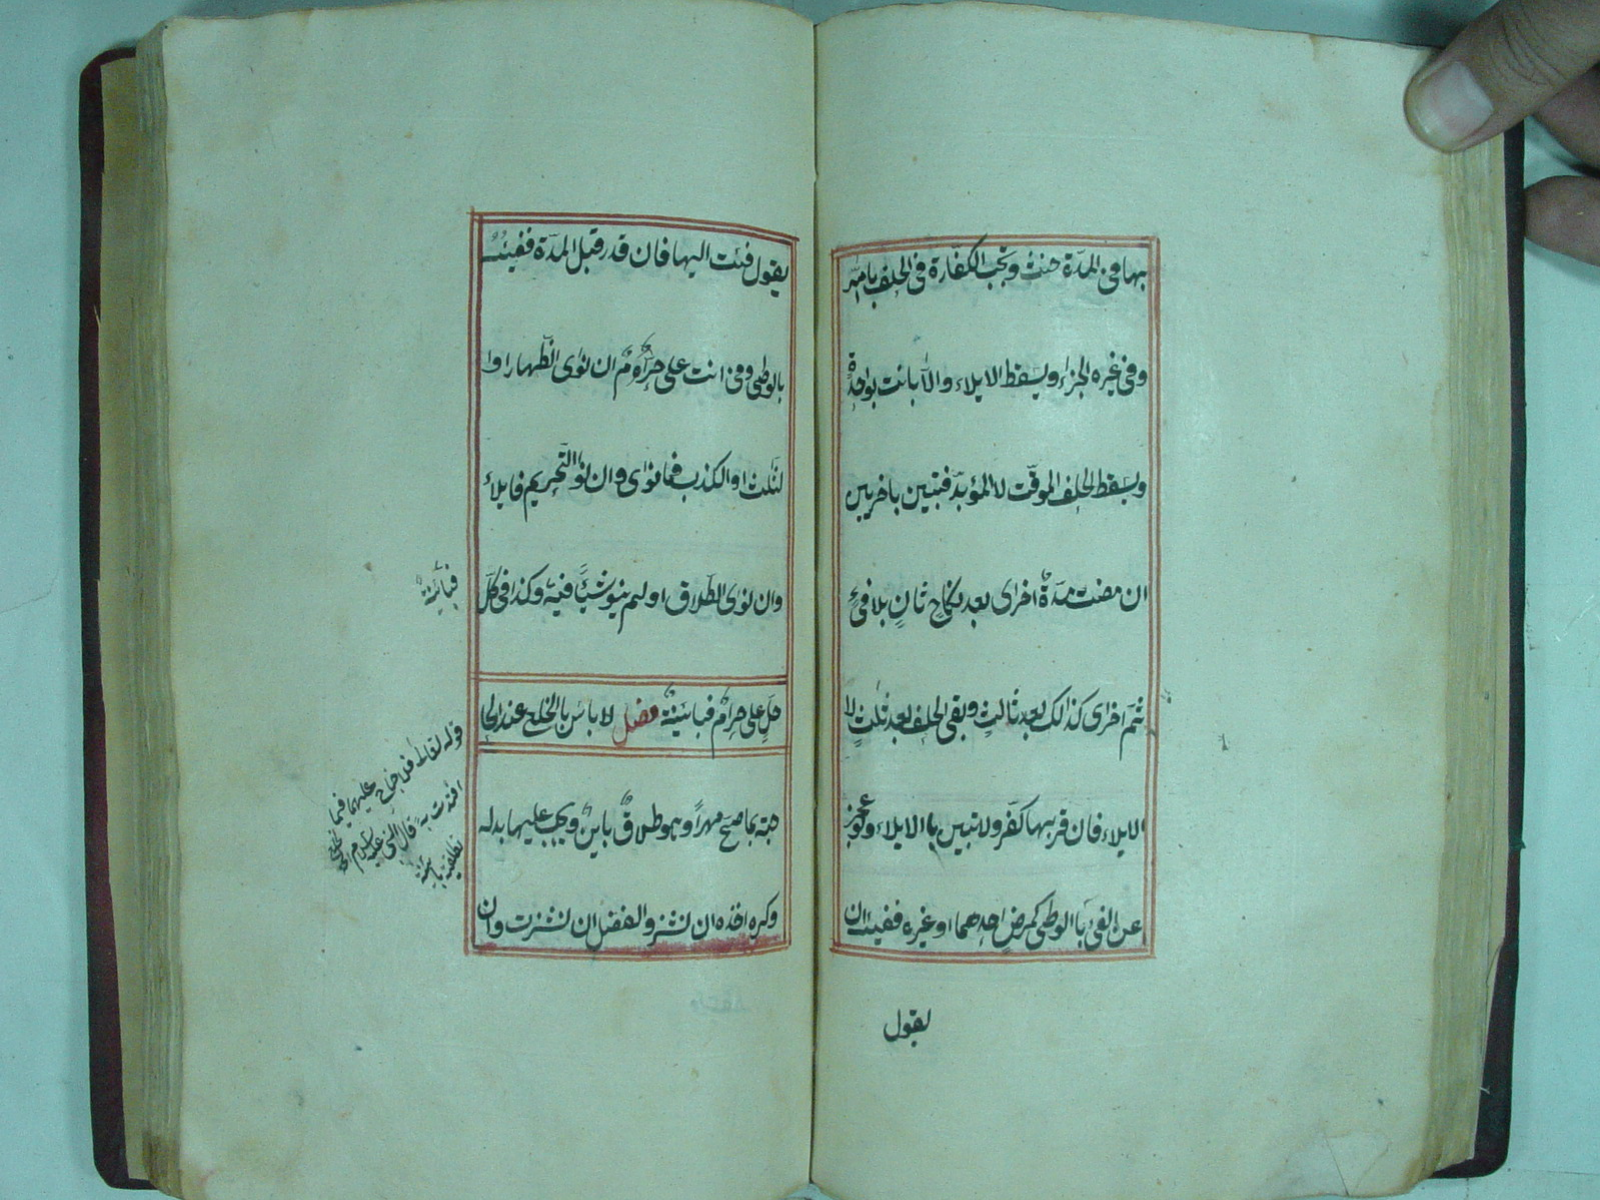 بها فى المدّة حنث وتجب الكفّارة فى الحلف بالله
وفى غيره الجزاء ويسقط الايلاء والاّ بانت بواحدة
ويسقط الحلف الموقّت لا المؤبّد فتبين باخريين
ان مضت مدّة اخرى بعد نكاح ثانٍ بلا فئٍ
ثمّ اخرى كذالك بعد ثالث وبقى الحلف بعد ثلثٍ لا
الايلاء فان قربها كفّر ولا تبين باالايلاء وعجز
عن الفئ باالوطى كمرض احدهما او غيره ففيئه ان
يقول
يقول فئت اليها فان قدر قبل المدّة ففيئه
بالوطى وفى انت على حرامٌ ان نوى الظّهار او ا
لثلث او الكذب فما نوى وان نوا التّحريم فايلاءٌ
وان نوى الطّلاق او لم ينو شيئاً فبته وكذا فى كلّ
حلٍ على حرامٌ فبائنةٌ فصل لا باس بالخلع عند الحا
جته بما صحّ مهراً وهو طلاقٌ باينٌ ويجب عليها بدله
وكره اخذه ان نشز والفضل ان نشزت وان
فبائنة
قوله تعالى فلا جناح عليهما فيما
افتدت به قال النبى عليه السلام الخلع
تطليقة باينة